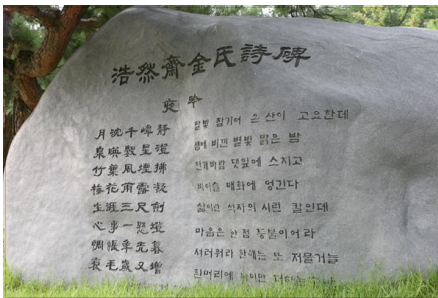 浩然齋金氏詩碑
夜吟
月沈千嶂靜
泉暎數星澄
竹葉風煙拂
梅花雨露凝
生涯三尺劍
心事一懸燈
惆悵年光暮
衰毛歲又增
달빛 잠기어 온 산이 고요한데
샘에 비낀 별빛 맑은 밤
안개바람 댓잎에 스치고
비이슬 매화에 엉긴다
삶이란 석자의 시린 칼인데
마음은 한 점 등불이어라
서러워라 한해는 또 저물거늘
흰머리에 나이만 더하는구나